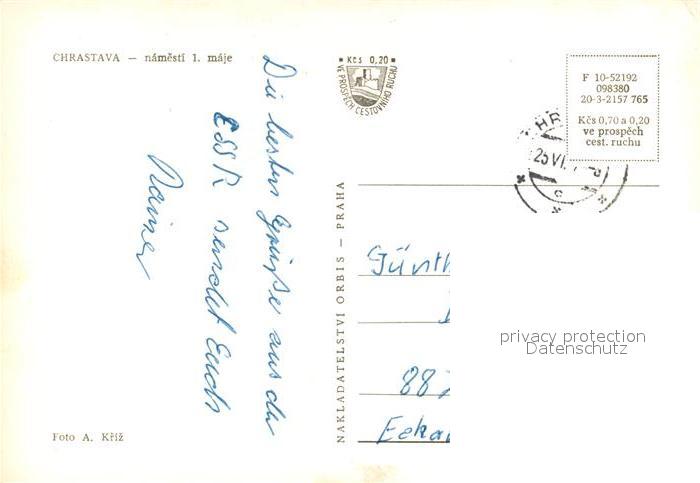 CHRASTAVA — náměstí 1. máje
Die besten Grüße aus der
ČSSR sendet Euch
Rainer
Foto A. Kříž
Kčs 0,20
VE PROSPĚCH CESTOVNÍHO RUCHU
NAKLADATELSTVÍ ORBIS — PRAHA
F 10-52192
098380
20-3-2157 765
Kčs 0,70 a 0,20
ve prospěch
cest. ruchu
25 VI.
Günth
88
Ecka
privacy protection
Datenschutz